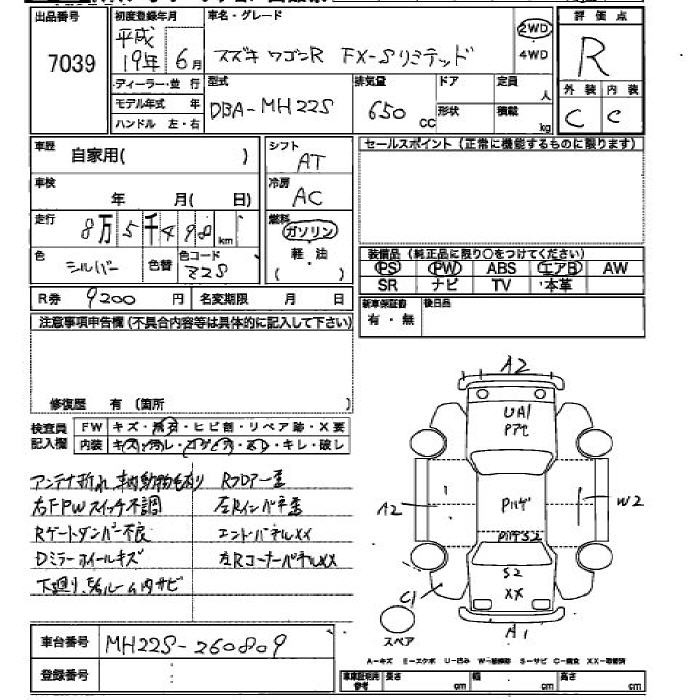 出品番号 初度登録年月 車名・グレード 評価点
7039 平成19年6月 スズキ ワゴンR FX-Sリミテッド 2WD 4WD R
ディーラー・並行 型式 排気量 ドア 定員 人 外装 内装
モデル年式 年 DBA-MH22S 650 CC 形状 積載 kg C C
ハンドル 左・右
車歴 自家用( ) シフト AT セールスポイント (正常に機能するものに限ります)
車検 年 月( 日) 冷房 AC
走行 8万5千498km 燃料 ガソリン
軽・油
( )
色 シルバー 色替 色コード Z2S 装備品 (純正品に限り○をつけてください)
PS PW ABS エアB AW
SR ナビ TV 本革
R券 9200円 名変期限 月 日 新車保証書 有・無 後日品
注意事項申告欄(不具合内容等は具体的に記入して下さい)
修復歴 有 (箇所
検査員記入欄 FW キズ・飛石・ヒビ割・リペア跡・X要
内装 キズ・汚レ・コゲ・穴・キレ・破レ
アンテナ折れ 車内動物毛有り Rフロアー歪
右FPWスイッチ不調 左Rインパネ歪
Rゲートダンパー不良 エンドパネルXX
Dミラーホイールキズ 左RコーナーパネルXX
下廻り、ルーム内サビ
A2
UA1
Pアセ
A2
Pハゲ
W2
PハゲS2
S2
XX
C1
A1
スペア
車台番号 MH22S-260809
登録番号 :
A-キズ E-エクボ U-凹み W-補修跡 S-サビ C-腐食 XX-取替済
車庫証明用参考 長さ cm 幅 cm 高さ cm